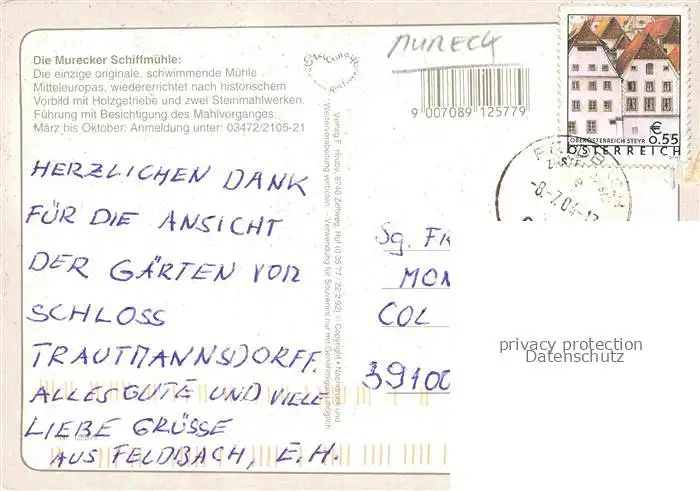 Die Murecker Schiffmühle:
Die einzige originale, schwimmende Mühle
Mitteleuropas, wiedererrichtet nach historischem
Vorbild mit Holzgetriebe und zwei Steinmahlwerken.
Führung mit Besichtigung des Mahlvorganges:
März bis Oktober: Anmeldung unter: 03472/2105-21
MURECK
9 007089 125779
OBERÖSTERREICH STEYR
€ 0.55
ÖSTERREICH
-8.-7.04-17
HERZLICHEN DANK
FÜR DIE ANSICHT
DER GÄRTEN VON
SCHLOSS
TRAUTMANNSDORFF.
ALLES GUTE UND VIELE
LIEBE GRÜSSE
AUS FELDBACH, E.H.
Verlag F. Hruby, 8740 Zeltweg, Ruf (0 35 77 / 22 2 92) © Copyright • Nachdruck und
Weiterverarbeitung verboten. – Verwendung für Souvenirs nur mit Genehmigung möglich.
Sg. FR
MON
COL
39100
privacy protection
Datenschutz